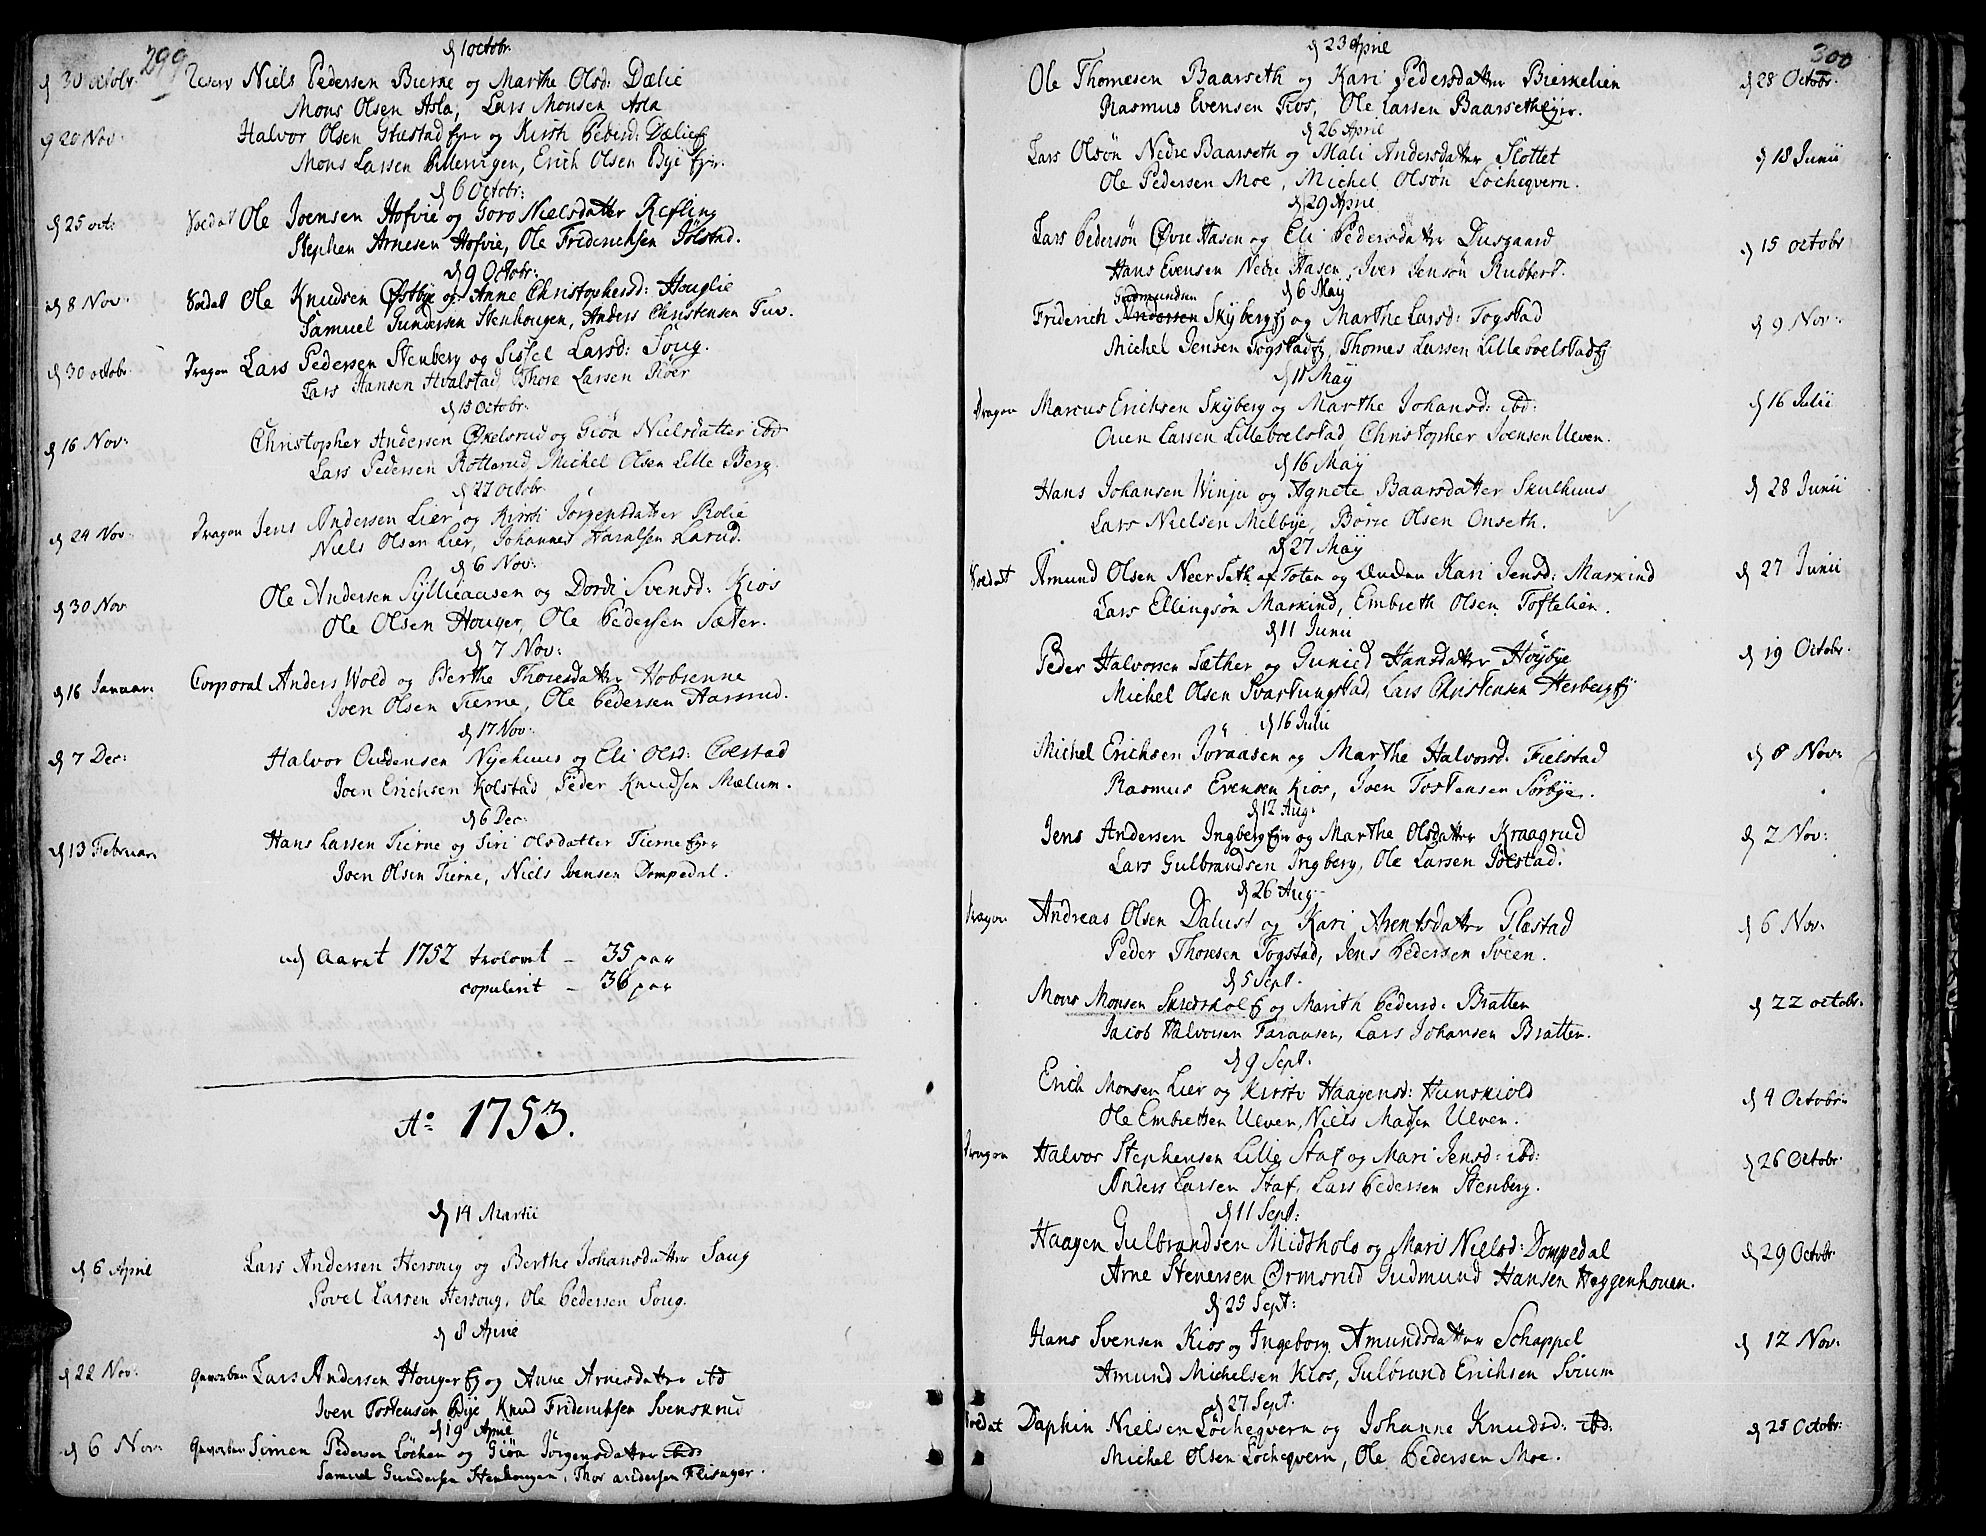 299
d 1 octobr.
d 30 octobr. Reserv Niels Pedersen Bierne og Marthe Olsd: Dælie
Mons Olsen Asla, Lars Monsen Asla
20 Nov: Halvor Olsen Glæstad og Kirsti Pedersd: Dælie
Mons Larsen Pillerviigen, Erich Olsen Bye
d 6 Octobr:
d 25 oct: Soldat Ole Joensen Hofvie og Goro Nielsdatter Refling
Stephen Arnesen Hofvie, Ole Friderichsen Jølstad.
d 9 Octobr:
d 8 Nov: Soldat Ole Knudsen Østbye og Anne Christophersd: Houglie
Samuel Gundersen Stenhougen, Anders Christensen Tuv.
d 30 octobr. Dragon Lars Pedersen Stenberg og Sissel Larsd: Soug.
Lars Hansen Hvalstad, Thore Larsen Røer
d 15 Octobr:
d 16 Nov: Christopher Andersen Økelsrud og Giøa Nielsdatter ibd
Lars Pedersen Rotterud, Michel Olsen Lille Berg.
d 22 octobr.
d 24 Nov: Dragon Jens Andersen Lier og Kirsti Jørgensdatter Rolie
Niels Olsen Lier, Johannes Haralsen Larud.
d 6 Nov:
d 30 Nov Ole Andersen Syllieaasen og Dordi Svensd: Kios
Ole Olsen Houger, Ole Pedersen Sæter.
d 7 Nov:
d 16 Januar: Corporal Anders Wold og Berthe Thoresdatter Hobrenne
Joen Olsen Tierne, Ole Pedersen Aasrud.
d 17 Nov:
d 7 Dec: Halvor Oudensen Nyehuus og Eli Olsd: Colstad
Joen Erichsen Kolstad, Peder Knudsen Mælum.
d 6 Dec:
d 13 Februar: Hans Larsen Tierne og Siri Olsdatter Tierne
Joen Olsen Tierne, Niels Ivensen Dompedal.
udj Aaret 1752 trolovet – 35 par
copulerit – 36 par
Ao 1753.
d 14 Martii
d 6 April Lars Andersen Hersoug og Berthe Johansdatter Saug
Povel Larsen Hersoug, Ole Pedersen Soug.
d 8 April
d 22 Nov: Gevorben Lars Andersen Houger og Anne Arnesdatter ibd
Iven Tostensen Bye Knud Friderichsen Svenskrud
d 19 April
d 6 Nov: Gevorben Simen Pedersen Løchen og Giøa Jørgensdatter ibd:
Samuel Gundersen Stenhougen, Thor Andersen Flisager.
300
d 23 April
Ole Thomesen Baarseth og Kari Pedersdatter Birkelien d 28 Octobr.
Rasmus Evensen Kios, Ole Larsen Baarseth
d 26 April
Lars Olsøn Nedre Baarseth og Mali Andersdatter Slottet d 18 Junii
Ole Pedersen Moe, Michel Olsøn Løcheqvern.
d 29 April
Lars Pedersøn Øvre Hasen og Eli Pedersdatter Dusgaard d 15 octobr
Hans Evensen Nedre Hasen, Iver Jensøn Rubberd.
d 6 May
Gudmundsen
Friderich Andersen Skyberg og Marthe Larsd: Togstad d 9 Nov:
Michel Jensen Togstad, Thomes Larsen Lilleboelstad
d 11 May
Dragon Marcus Erichsen Skyberg og Marthe Johansd: ibd: d 16 Julii
Ouen Larsen Lilleboelstad, Christopher Ivensen Ulven.
d 16 May
Hans Johansen Winju og Agnete Baarsdatter Skulhuus d 28 Junii
Lars Nielsen Melbye, Børre Olsen Onseth.
d 27 May
Soldat Amund Olsen Neer Seth af Toten og Enken Kari Jensd: Markind d 27 Junii
Lars Ellingsøn Markind, Embreth Olsen Toftelien.
d 11 Junii
Peder Halvorsen Sæther og Gunild Hansdatter Høybye d 19 Octobr.
Michel Olsen Svartungstad, Lars Christensen Herberg
d 16 Julii
Michel Erichsen Joraasen og Marthe Halvorsd: Fielstad d 8 Nov:
Rasmus Evensen Kios, Joen Tostensen Sørbye.
d 12 Aug:
Jens Andersen Ingberg og Marthe Olsdatter Kraagrud d 2 Nov:
Lars Gulbrandsen Ingberg, Ole Larsen Joelstad.
d 26 Aug:
Dragon Andreas Olsen Dalust og Kari Arentsdatter Glæstad d 6 Nov:
Peder Thoresen Togstad, Jens Pedersen Sveen.
d 5 Sept.
Mons Monsen Skredshol og Marith Pedersd: Bratten d 22 octobr.
Jacob Halvorsen Faraasen, Lars Johansen Bratten.
d 9 Sept.
Erich Monsen Lier og Kirsti Haagensd: Hunskiold d 4 Octobr:
Ole Embretsen Ulven, Niels Madsen Ulven.
Dragon Halvor Stephensen Lille Staf og Mari Jensd: ibd: d 26 Octobr.
Anders Larsen Staf, Lars Pedersen Stenberg.
d 11 Sept:
Haagen Gulbrandsen Midthold og Mari Nielsd: Dompedal d 29 Octobr
Arne Stenersen Ørmsrud Gudmund Hansen Heggenhouen.
d 25 Sept:
Hans Svensen Kios og Ingeborg Amundsdatter Schappel d 12 Nov:
Amund Michelsen Kios, Gulbrand Erichsen Svium
d 27 Sept.
Soldat Daphin Nielsen Løcheqvern og Johanne Knudsd: ibd: d 25 Octobr:
Michel Olsen Løcheqvern, Ole Pedersen Moe.